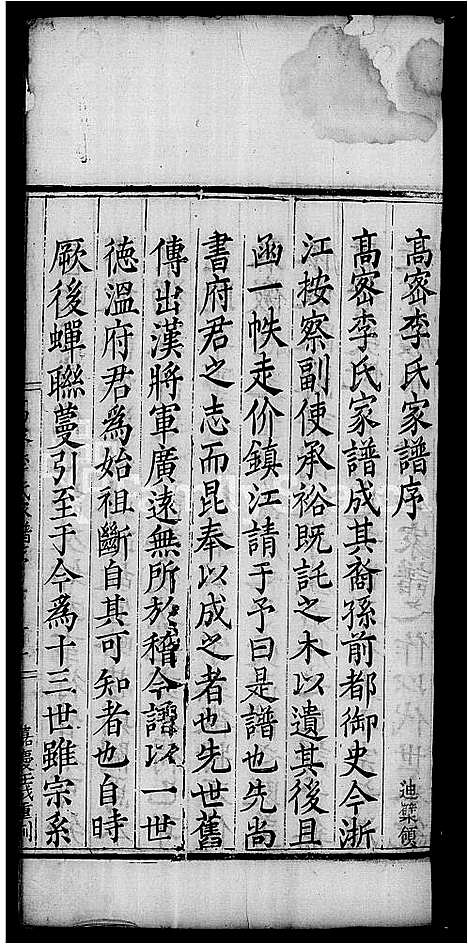 高密李氏家譜序
高密李氏家譜成其裔孫前都御史今浙
迪簗領
江按察副使承裕既託之木以遺其後且
函一帙走价鎮江請于予曰是譜也先尚
書府君之志而昆奉以成之者也先世舊
傳出漢將軍廣遠無所於稽今譜以一世
德溫府君為始祖斷自其可知者也自時
厥後蟬聯蔓引至于今為十三世雖宗系
嘉慶壬戌重刊